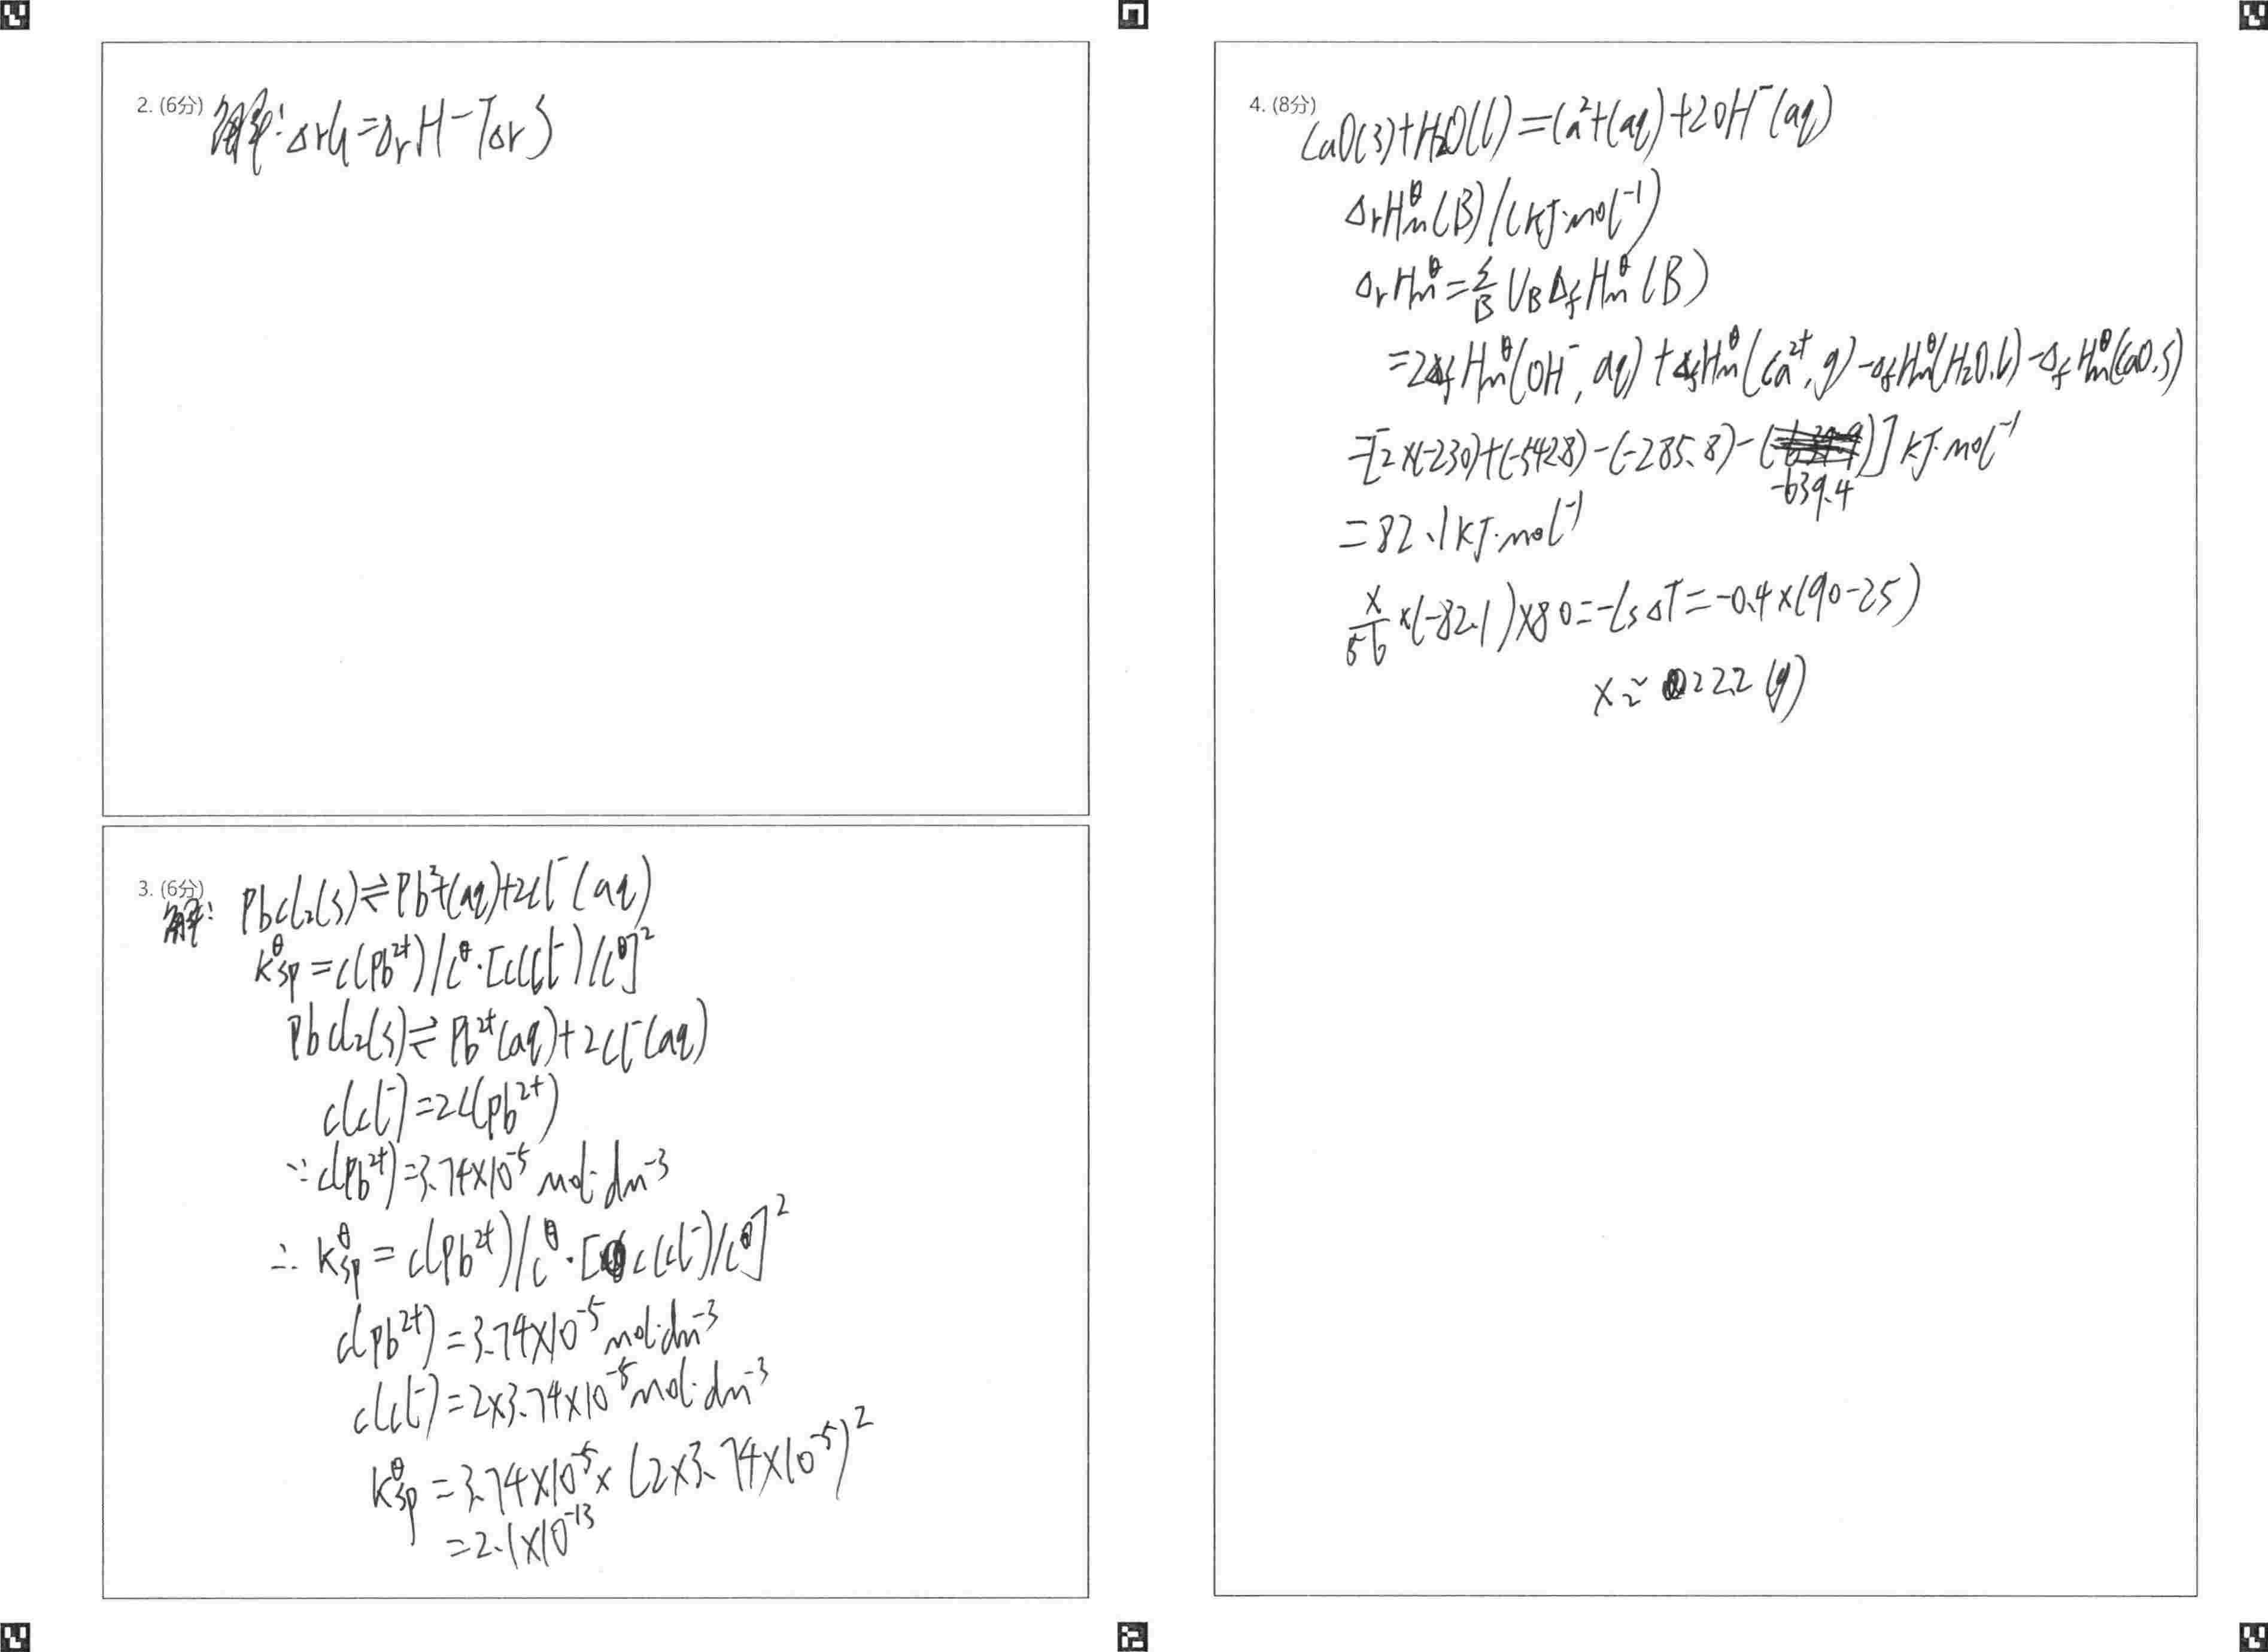 2. (6分) 解: ΔrG=ΔrH-TΔrS
3. (6分)
解: PbCl₂(s)⇌Pb²⁺(aq)+2Cl⁻(aq)
Kᶿsp=c(Pb²⁺)/cᶿ·[c(Cl⁻)/cᶿ]²
PbCl₂(s)⇌Pb²⁺(aq)+2Cl⁻(aq)
c(Cl⁻)=2c(Pb²⁺)
∵c(Pb²⁺)=3.74×10⁻⁵ mol·dm⁻³
∴Kᶿsp=c(Pb²⁺)/cᶿ·[c(Cl⁻)/cᶿ]²
c(Pb²⁺)=3.74×10⁻⁵mol·dm⁻³
c(Cl⁻)=2×3.74×10⁻⁵mol·dm⁻³
Kᶿsp=3.74×10⁻⁵×(2×3.74×10⁻⁵)²
=2.1×10⁻¹³
4. (8分)
CaO(s)+H₂O(l)=Ca²⁺(aq)+2OH⁻(aq)
ΔrHᶿm(B)/(kJ·mol⁻¹)
ΔrHᶿm=∑B υB ΔfHᶿm(B)
=2ΔfHᶿm(OH⁻,aq)+ΔfHᶿm(Ca²⁺,g)-ΔfHᶿm(H₂O,l)-ΔfHᶿm(CaO,s)
=[2×(-230)+(-542.8)-(-285.8)-(-639.4)]kJ·mol⁻¹
=82.1kJ·mol⁻¹
x/56×(-82.1)×80=-CsΔT=-0.4×(90-25)
x≈222(g)